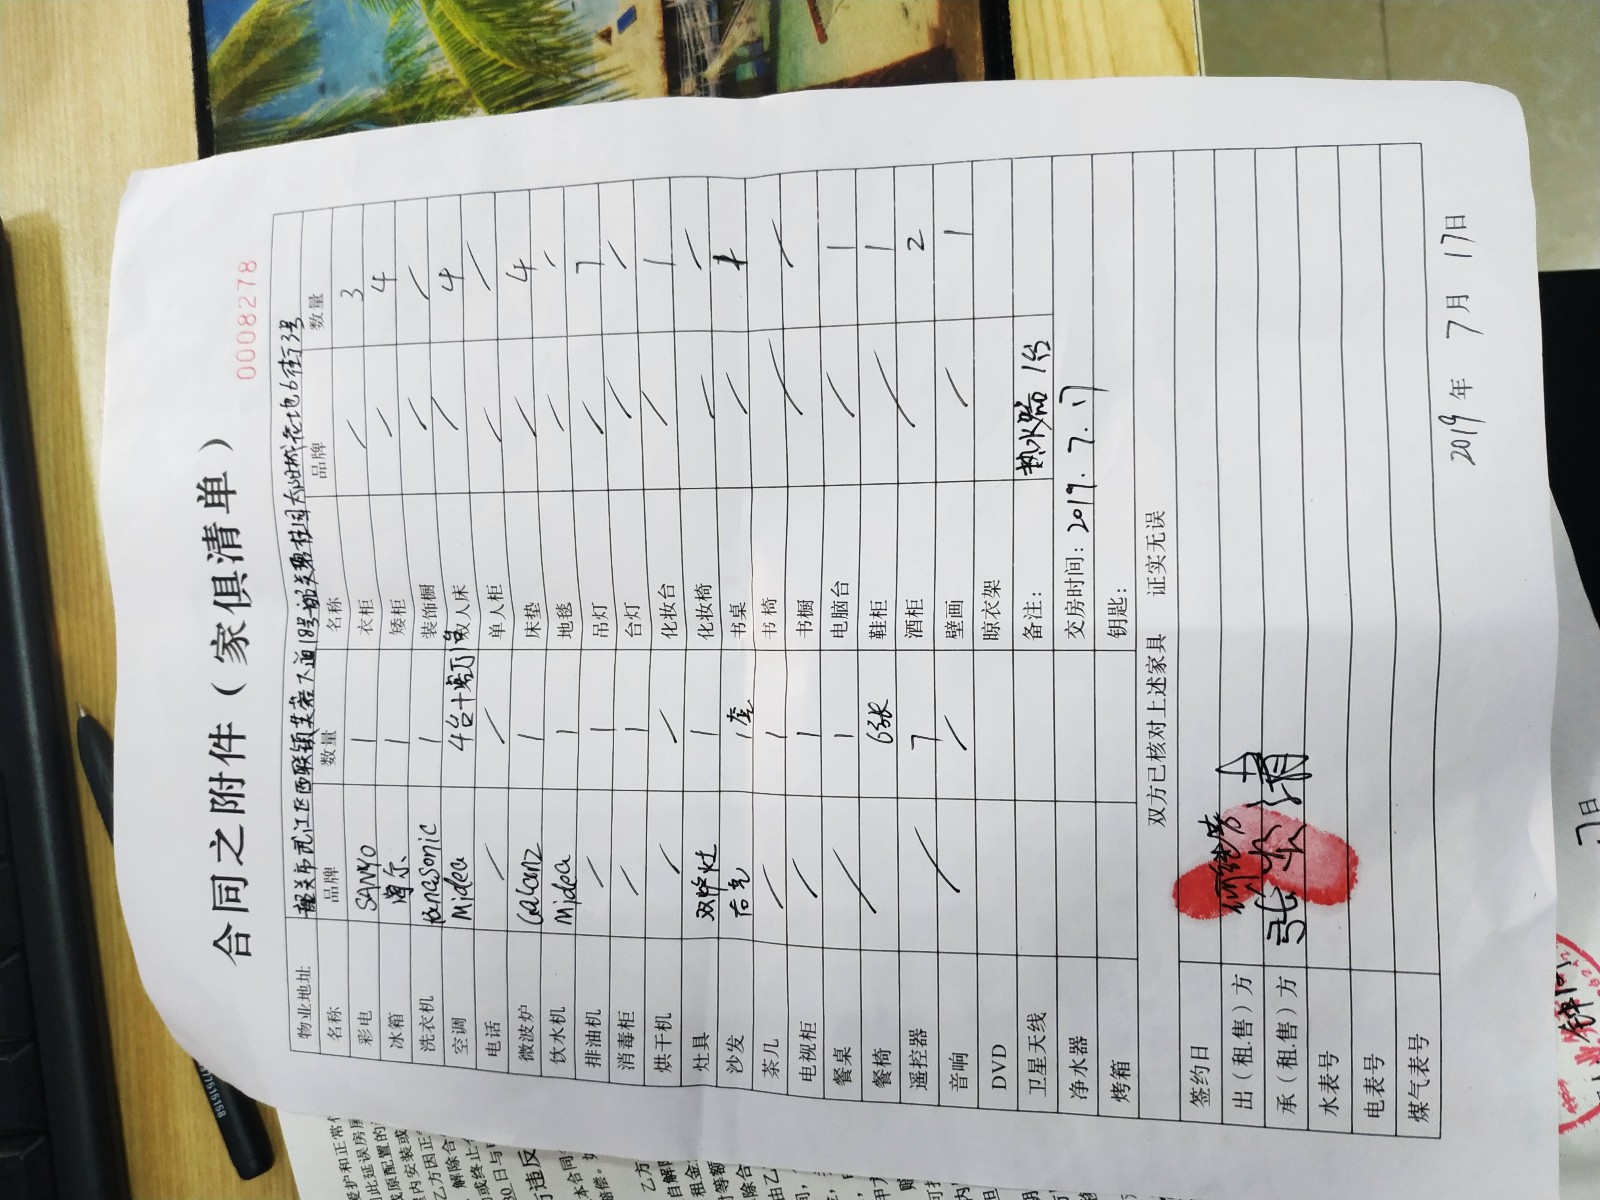 0008278
合同之附件（家俱清单）
物业地址 韶关市武江区西联镇芙蓉下道18号韶关碧桂园太阳城花地6街3号
名称 品牌 数量 名称 品牌 数量
彩电 SANYO 1 衣柜 / 3
冰箱 海尔 1 矮柜 / 4
洗衣机 PanaSonic 1 装饰橱 / /
空调 Midea 4台+ 1台 双人床 / 4
电话 / / 单人柜 / /
微波炉 Galanz 1 床垫 / 4
饮水机 Midea 1 地毯 / /
排油机 / 1 吊灯 / 7
消毒柜 / 1 台灯 / /
烘干机 / / 化妆台 / 1
灶具 双炉灶 1 化妆椅 / /
沙发 1套 书桌 /
茶几 / 1 书椅
电视柜 / 1 书橱 / /
餐桌 / 1 电脑台 / 1
餐椅 6张 鞋柜 / 1
遥控器 / 7 酒柜 2
音响 / 壁画 / 1
DVD 晾衣架
卫星天线 备注： 热水器 1台
净水器 交房时间：2019.7.17
烤箱 钥匙：
双方已核对上述家具 证实无误
签约日
出（租.售）方
承（租.售）方 张
水表号
电表号
煤气表号
2019年 7月 17日